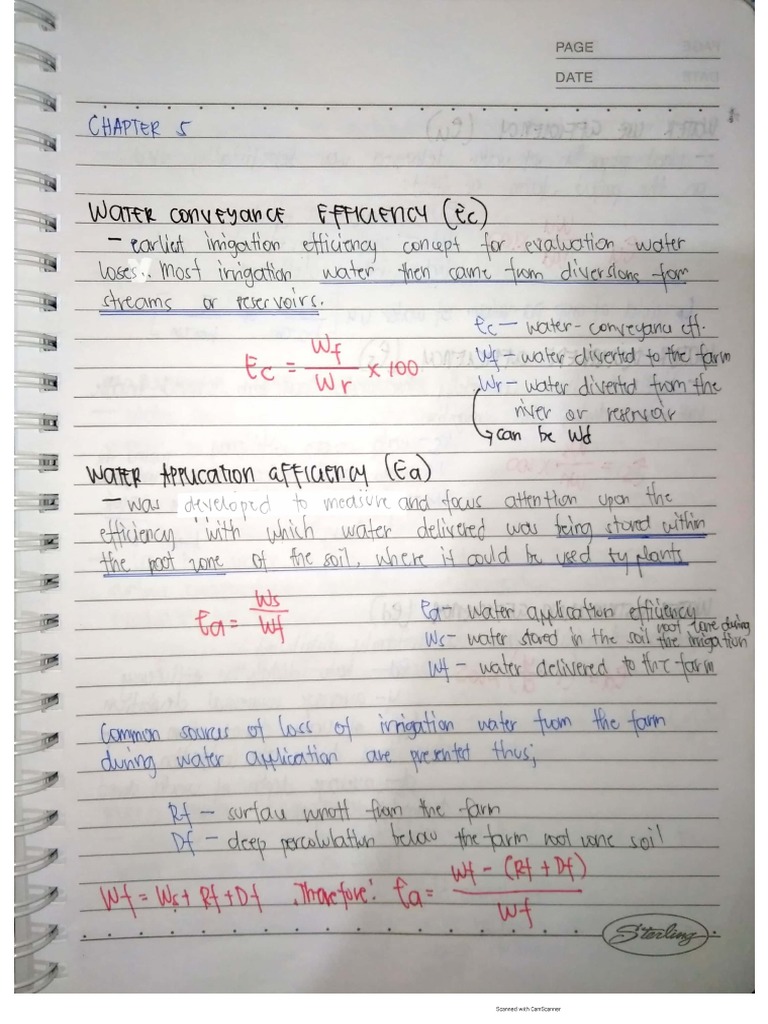 PAGE
DATE
CHAPTER 5
WATER CONVEYANCE EFFICIENCY (Ec)
– earliest irrigation efficiency concept for evaluation water
loses.. Most irrigation water then came from diversions fom
streams or reservoirs.
Ec = Wf / Wr x 100
Ec – water-conveyance eff.
Wf – water diverted to the farm
Wr – water diverted from the
river or reservoir
→ can be Wd
WATER APPLICATION AFFICIENCY (Ea)
– was developed to measure and focus attention upon the
efficiency with which water delivered was being stored within
the root zone of the soil, where it could be used by plants
Ea = Ws / Wf
Ea – Water application efficiency
Ws – water stored in the soil root zone during
the irrigation
Wf – water delivered to the farm
Common sources of loss of irrigation water from the farm
during water application are presented thus;
Rf – surface runoff from the farm
Df – deep percolation below the farm root zone soil
Wf = Ws + Rf + Df Therefore: Ea = Wf – (Rf + Df) / Wf
Sterling
Scanned with CamScanner